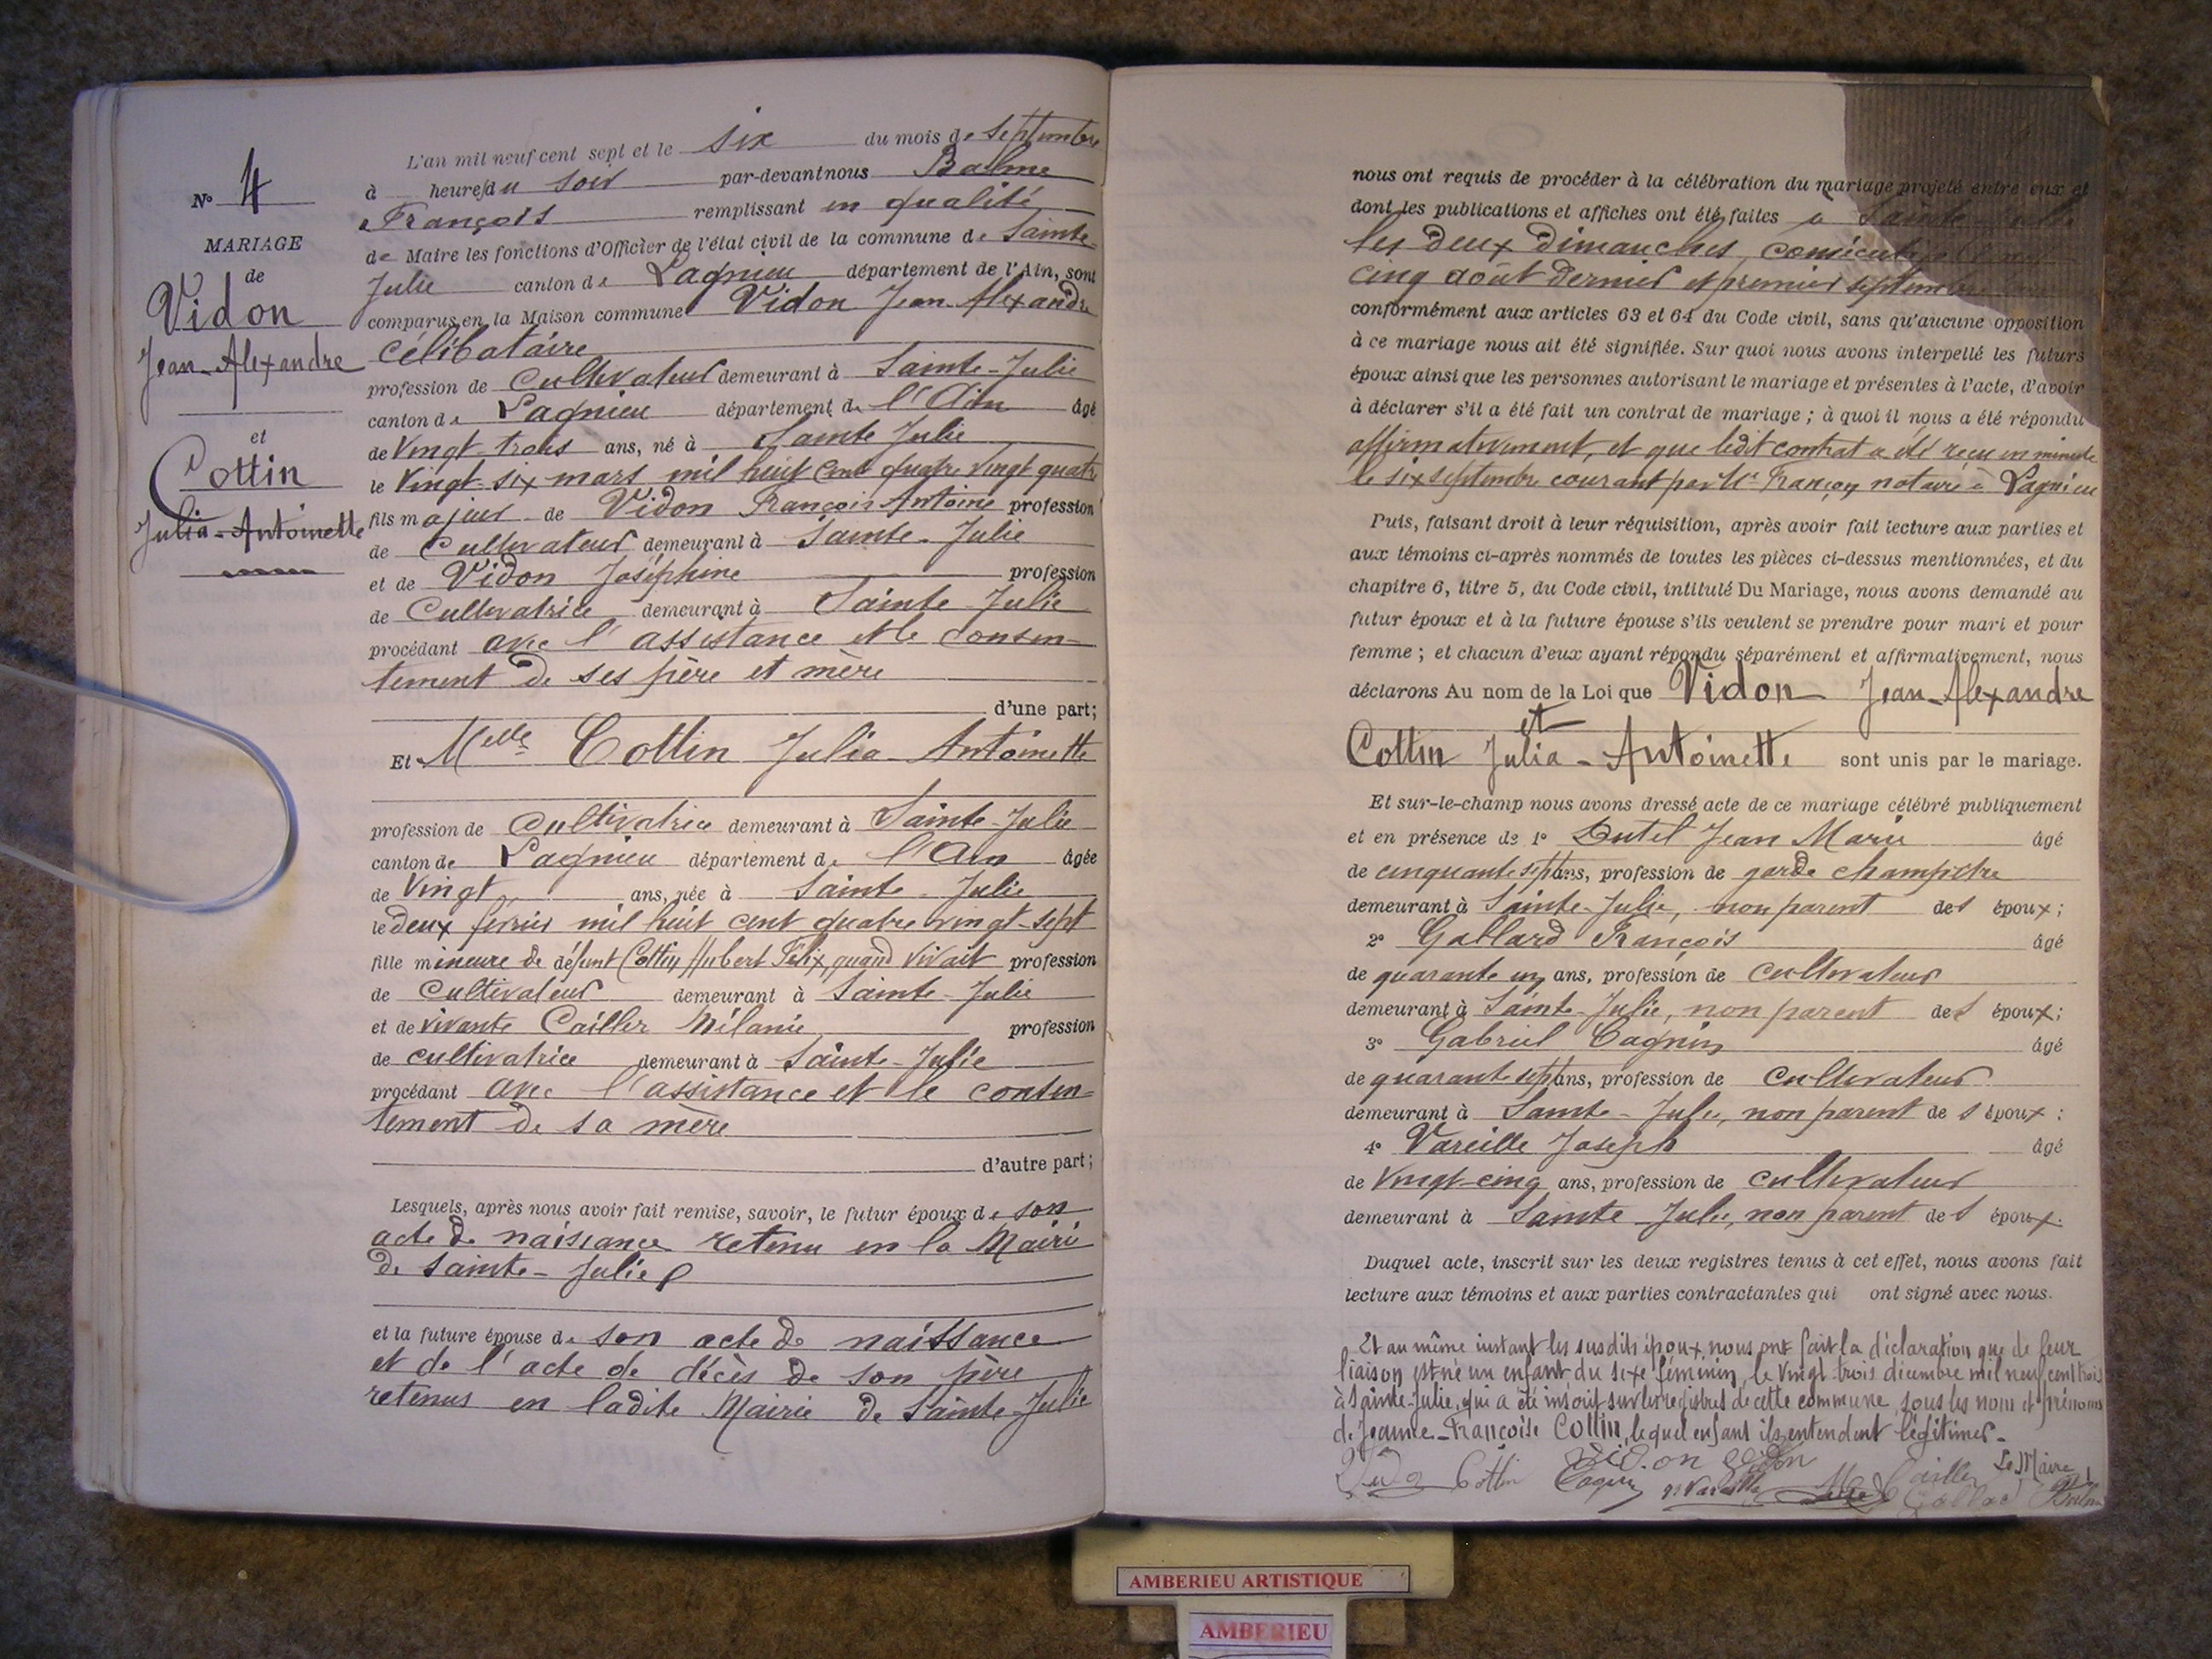 N° 4
MARIAGE
de
Vidon
Jean-Alexandre
et
Cottin
Julia-Antoinette
L'an mil neuf cent sept et le six du mois de Septembre
à heures du soir par-devant nous Balme
François remplissant en qualité
de Maire les fonctions d'Officier de l'état civil de la commune de Sainte-
Julie canton de Lagnieu département de l'Ain, sont
comparus en la Maison commune Vidon Jean-Alexandre
célibataire
profession de Cultivateur demeurant à Sainte-Julie
canton de Lagnieu département de l'Ain âgé
de Vingt-trois ans, né à Sainte Julie
le Vingt-six mars mil huit cent quatre vingt quatre
fils majeur de Vidon François Antoine profession
de Cultivateur demeurant à Sainte-Julie
et de Vidon Joséphine profession
de Cultivatrice demeurant à Sainte Julie
procédant avec l'assistance et le consen-
tement de ses père et mère
d'une part;
Et Melle Cottin Julia-Antoinette
profession de Cultivatrice demeurant à Sainte-Julie
canton de Lagnieu département de l'Ain âgée
de Vingt ans, née à Sainte-Julie
le deux février mil huit cent quatre vingt-sept
fille mineure de défunt Cottin Hubert Félix, quand vivait profession
de Cultivateur demeurant à Sainte-Julie
et de vivante Cailler Mélanie profession
de cultivatrice demeurant à Sainte-Julie
procédant avec l'assistance et le consen-
tement de sa mère
d'autre part;
Lesquels, après nous avoir fait remise, savoir, le futur époux de son
acte de naissance retenu en la Mairie
de Sainte-Julie
et la future épouse de son acte de naissance
et de l'acte de décès de son père
retenus en ladite Mairie de Sainte-Julie
nous ont requis de procéder à la célébration du mariage projeté entre eux et
dont les publications et affiches ont été faites à Sainte
les deux dimanches
cinq août dernier et premier septembre
conformément aux articles 63 et 64 du Code civil, sans qu'aucune opposition
à ce mariage nous ait été signifiée. Sur quoi nous avons interpellé les futurs
époux ainsi que les personnes autorisant le mariage et présentes à l'acte, d'avoir
à déclarer s'il a été fait un contrat de mariage ; à quoi il nous a été répondu
affirmativement, et que ledit contrat a été reçu en minute
le six septembre courant par Me Françon notaire à Lagnieu
Puis, faisant droit à leur réquisition, après avoir fait lecture aux parties et
aux témoins ci-après nommés de toutes les pièces ci-dessus mentionnées, et du
chapitre 6, titre 5, du Code civil, intitulé Du Mariage, nous avons demandé au
futur époux et à la future épouse s'ils veulent se prendre pour mari et pour
femme ; et chacun d'eux ayant répondu séparément et affirmativement, nous
déclarons Au nom de la Loi que Vidon Jean-Alexandre
et
Cottin Julia-Antoinette sont unis par le mariage.
Et sur-le-champ nous avons dressé acte de ce mariage célébré publiquement
et en présence de 1° Dutel Jean Marie âgé
de cinquante sept ans, profession de garde champêtre
demeurant à Sainte-Julie, non parent des époux;
2° Gallard François âgé
de quarante un ans, profession de Cultivateur
demeurant à Sainte-Julie, non parent des époux;
3° Gabriel Cagnin âgé
de quarante sept ans, profession de Cultivateur
demeurant à Sainte-Julie, non parent des époux :
4° Vareille Joseph âgé
de Vingt-cinq ans, profession de cultivateur
demeurant à Sainte Julie, non parent des époux.
Duquel acte, inscrit sur les deux registres tenus à cet effet, nous avons fait
lecture aux témoins et aux parties contractantes qui ont signé avec nous.
Et au même instant les susdits époux nous ont fait la déclaration que de leur
liaison est né un enfant du sexe féminin, le vingt-trois décembre mil neuf cent trois
à Sainte-Julie, qui a été inscrit sur les registres de cette commune sous les nom et prénoms
de Jeanne-Françoise Cottin, lequel enfant ils entendent légitimer.
Le Maire
Vidon Cottin Cagnin Vareille Cailler Gallard Balme
AMBERIEU ARTISTIQUE
AMBERIEU